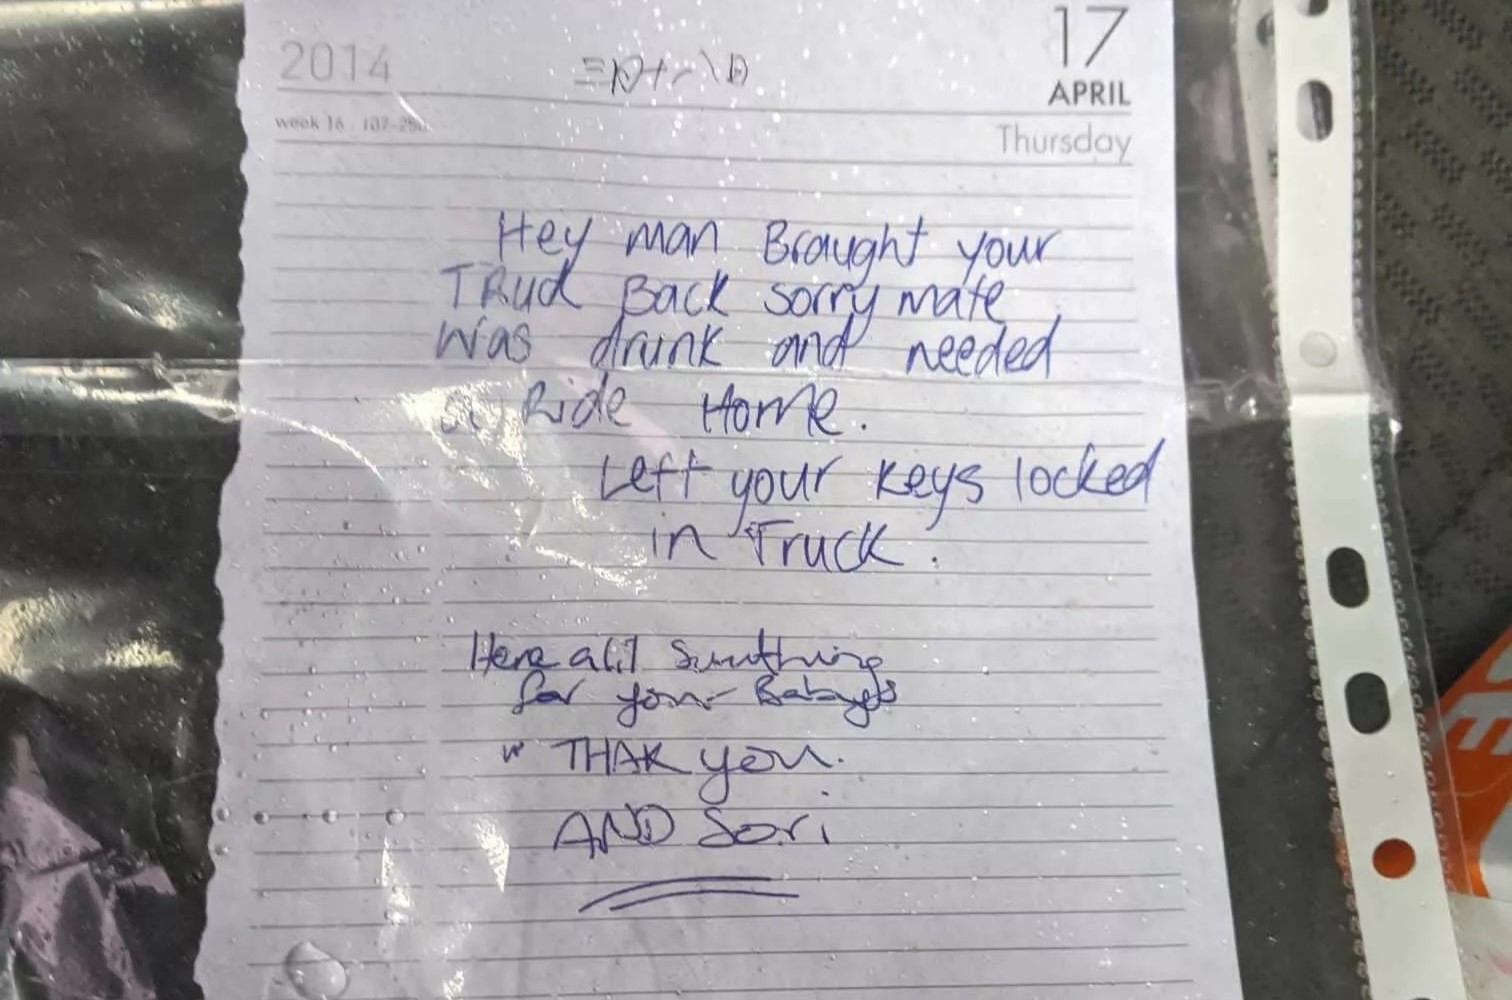 2014
17
APRIL
week 16
Thursday
Hey man Braught your
TRuck Back sorry mate
was drunk and needed
Ride Home.
Left your keys locked
in Truck.
Here a lil sumthing
for your Babyes
THAK you.
AND Sori